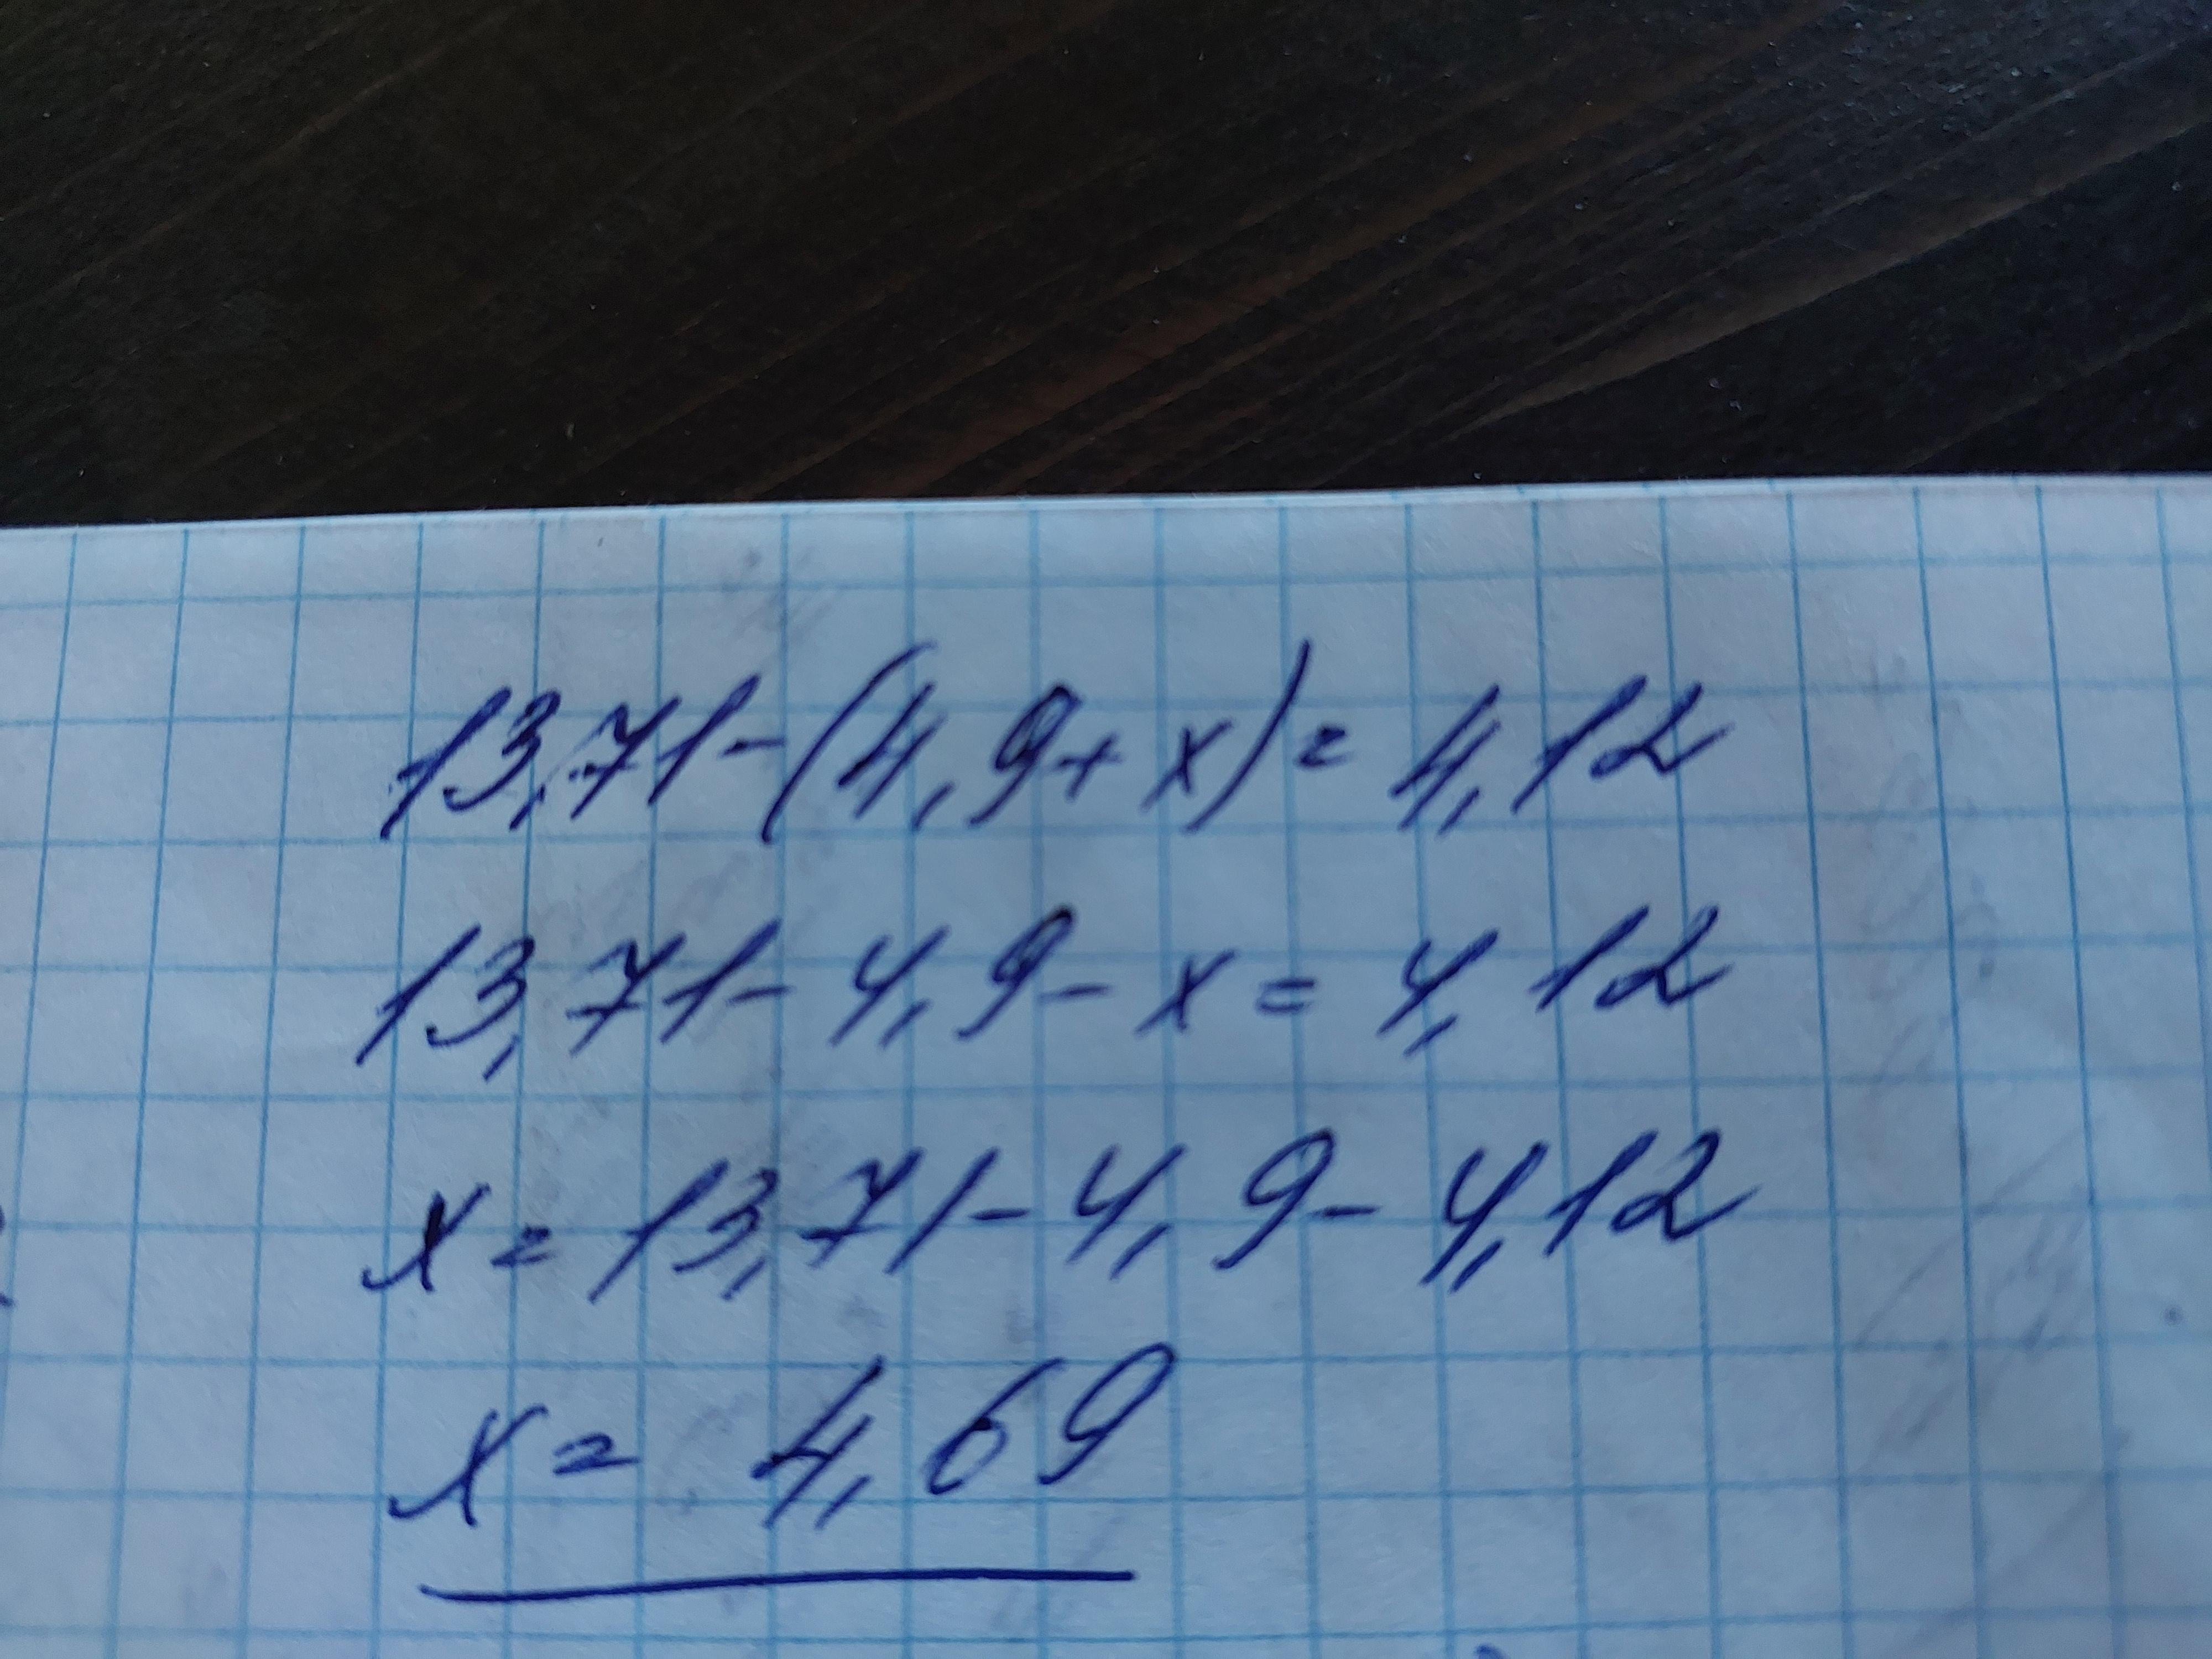 13,71-(4,9+x)=4,12
13,71-4,9-x=4,12
x=13,71-4,9-4,12
x=4,69